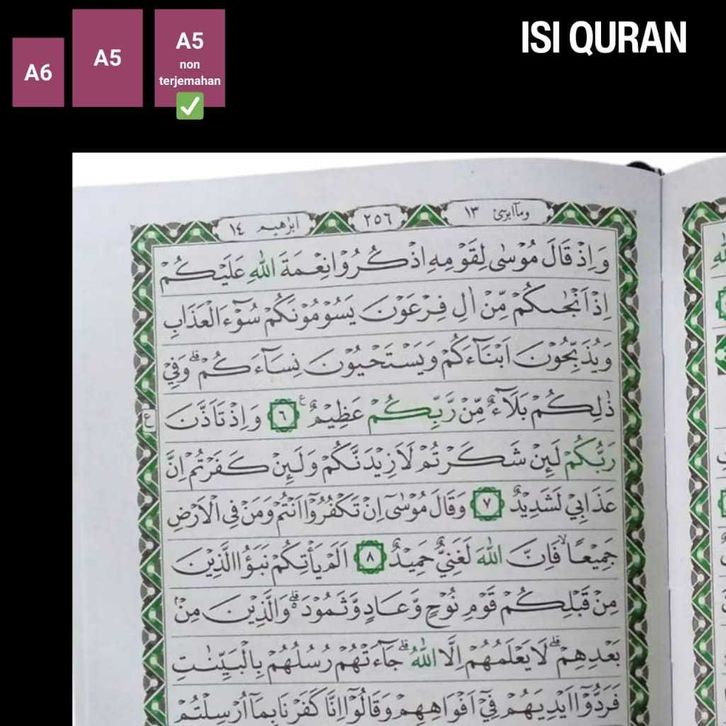 A6
A5
A5
non
terjemahan
ISI QURAN
وماابرئ ١٣
٢٥٦
ابرٰهيم ١٤
وَاِذْ قَالَ مُوْسٰى لِقَوْمِهِ اذْكُرُوْا نِعْمَةَ اللّٰهِ عَلَيْكُمْ
اِذْ اَنْجٰىكُمْ مِّنْ اٰلِ فِرْعَوْنَ يَسُوْمُوْنَكُمْ سُوْۤءَ الْعَذَابِ
وَيُذَبِّحُوْنَ اَبْنَاۤءَكُمْ وَيَسْتَحْيُوْنَ نِسَاۤءَكُمْ ۗ وَفِيْ
ذٰلِكُمْ بَلَاۤءٌ مِّنْ رَّبِّكُمْ عَظِيْمٌ ࣖ ٦ وَاِذْ تَاَذَّنَ
ع
رَبُّكُمْ لَىِٕنْ شَكَرْتُمْ لَاَزِيْدَنَّكُمْ وَلَىِٕنْ كَفَرْتُمْ اِنَّ
عَذَابِيْ لَشَدِيْدٌ ٧ وَقَالَ مُوْسٰٓى اِنْ تَكْفُرُوْٓا اَنْتُمْ وَمَنْ فِى الْاَرْضِ
جَمِيْعًا ۙ فَاِنَّ اللّٰهَ لَغَنِيٌّ حَمِيْدٌ ٨ اَلَمْ يَأْتِكُمْ نَبَؤُا الَّذِيْنَ
مِنْ قَبْلِكُمْ قَوْمِ نُوْحٍ وَّعَادٍ وَّثَمُوْدَ ۗ وَالَّذِيْنَ مِنْۢ
بَعْدِهِمْ ۗ لَا يَعْلَمُهُمْ اِلَّا اللّٰهُ ۗ جَاۤءَتْهُمْ رُسُلُهُمْ بِالْبَيِّنٰتِ
فَرَدُّوْٓا اَيْدِيَهُمْ فِيْٓ اَفْوَاهِهِمْ وَقَالُوْٓا اِنَّا كَفَرْنَا بِمَآ اُرْسِلْتُمْ